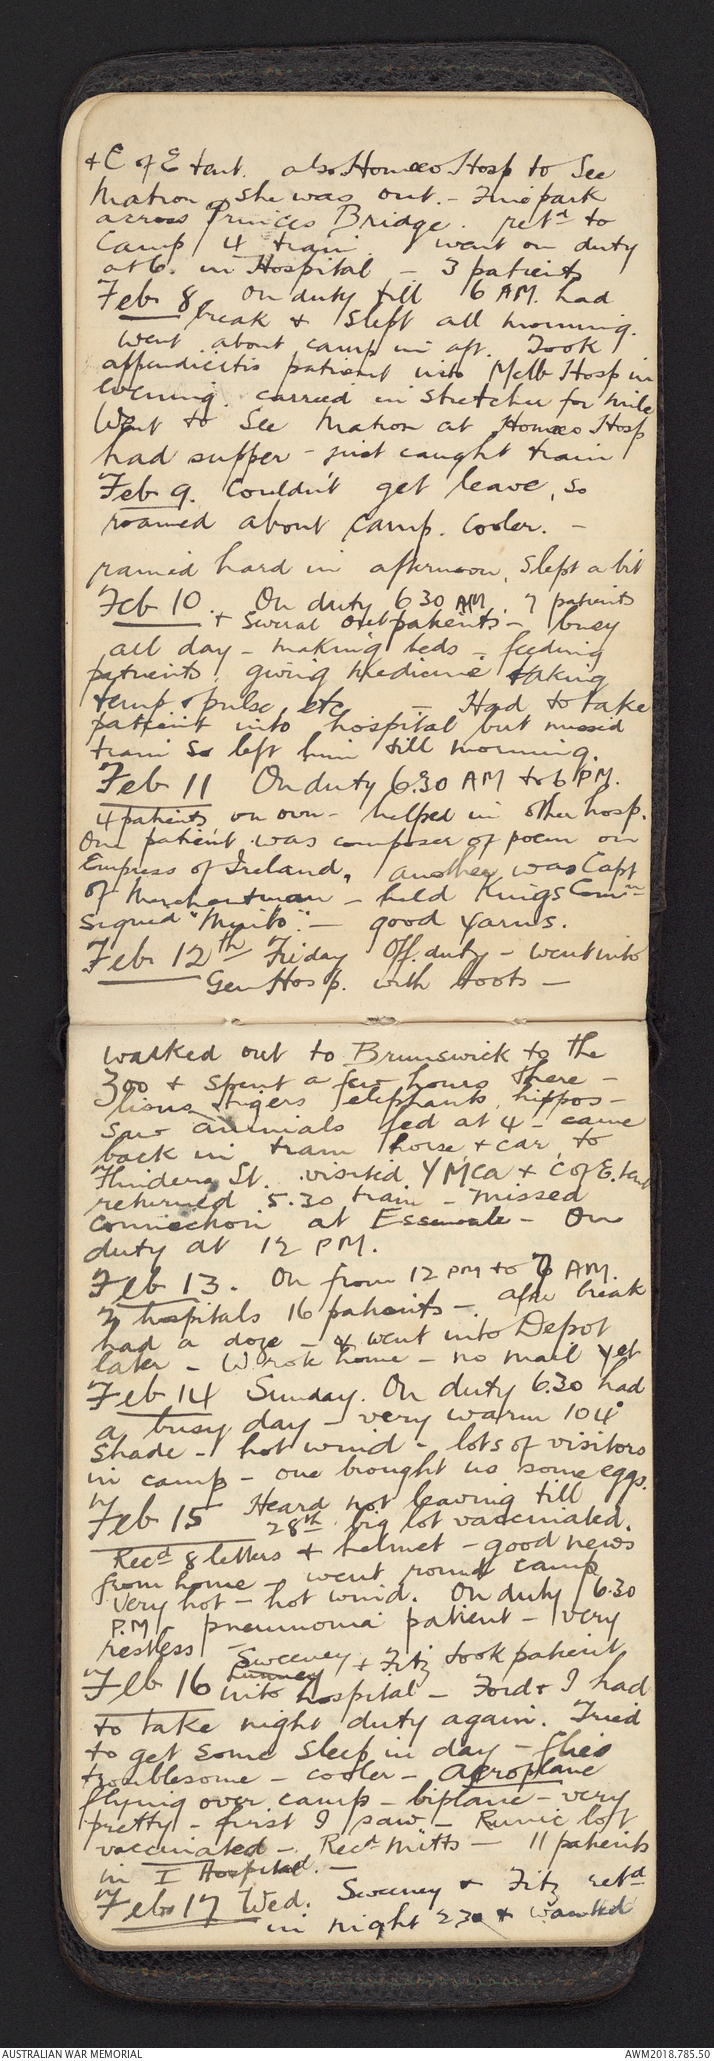 + C of E tent. also Homeo Hosp to See
Matron she was out. - Fine park
across Princes Bridge. retd to
Camp 4 train went on duty
at 6. in Hospital - 3 patients
Feb 8 On duty till 6 AM. had
break + slept all morning.
Went about camp in aft. Took
appendicitis patient into Melb Hosp in
evening. carried in stretcher for mile
Went to See Matron at Homeo Hosp
had supper - just caught train
Feb 9. Couldn't get leave, so
roamed about camp. Cooler. -
rained hard in afternoon, slept a bit
Feb 10. On duty 6 30 AM. 7 patients
+ several outpatients - busy
all day - making beds - feeding
patients, giving medicine taking
temp + pulse etc - Had to take
patient into hospital but missed
train so left him till morning.
Feb 11 On duty 6.30 AM to 6 PM.
4 patients on own - helped in other hosp.
One patient was composer of poem on
Empress of Ireland, another was Capt
of Merchantman - held Kings Comn
signed - good yarns.
Feb 12th Friday Off duty - went into
Gen Hosp. with boots -
walked out to Brunswick to the
Zoo + spent a few hours there -
lions tigers elephants, hippos -
saw animals fed at 4 - came
back in tram horse + car to
Flinders St. visited YMCA + C of E. tent
returned 5.30 train - missed
connection at - On
duty at 12 PM.
Feb 13. On from 12 PM to 6 AM.
2 hospitals 16 patients -. after break
had a doze - + went into Depot
later - Wrote home - no mail yet
Feb 14 Sunday. On duty 6.30 had
a busy day - very warm 104°
shade - hot wind - lots of visitors
in camp - one brought us some eggs.
Feb 15 Heard not leaving till
28th big lot vaccinated.
Recd 8 letters + helmet - good news
from home - went round camp
very hot - hot wind. On duty 6.30
P.M. pneumonia patient - very
restless -
Feb 16 Sweeney + Fitz took patient
into hospital - Ford + I had
to take night duty again. Tried
to get some sleep in day - flies
troublesome - cooler - Aeroplane
flying over camp - biplane - very
pretty - first I saw - Runic lot
vaccinated - Recd Mitts - 11 patients
in I Hospital. -
Feb 17 Wed. Sweeney + Fitz retd
in night 230 + wanted
AUSTRALIAN WAR MEMORIAL
AWM2018.785.50